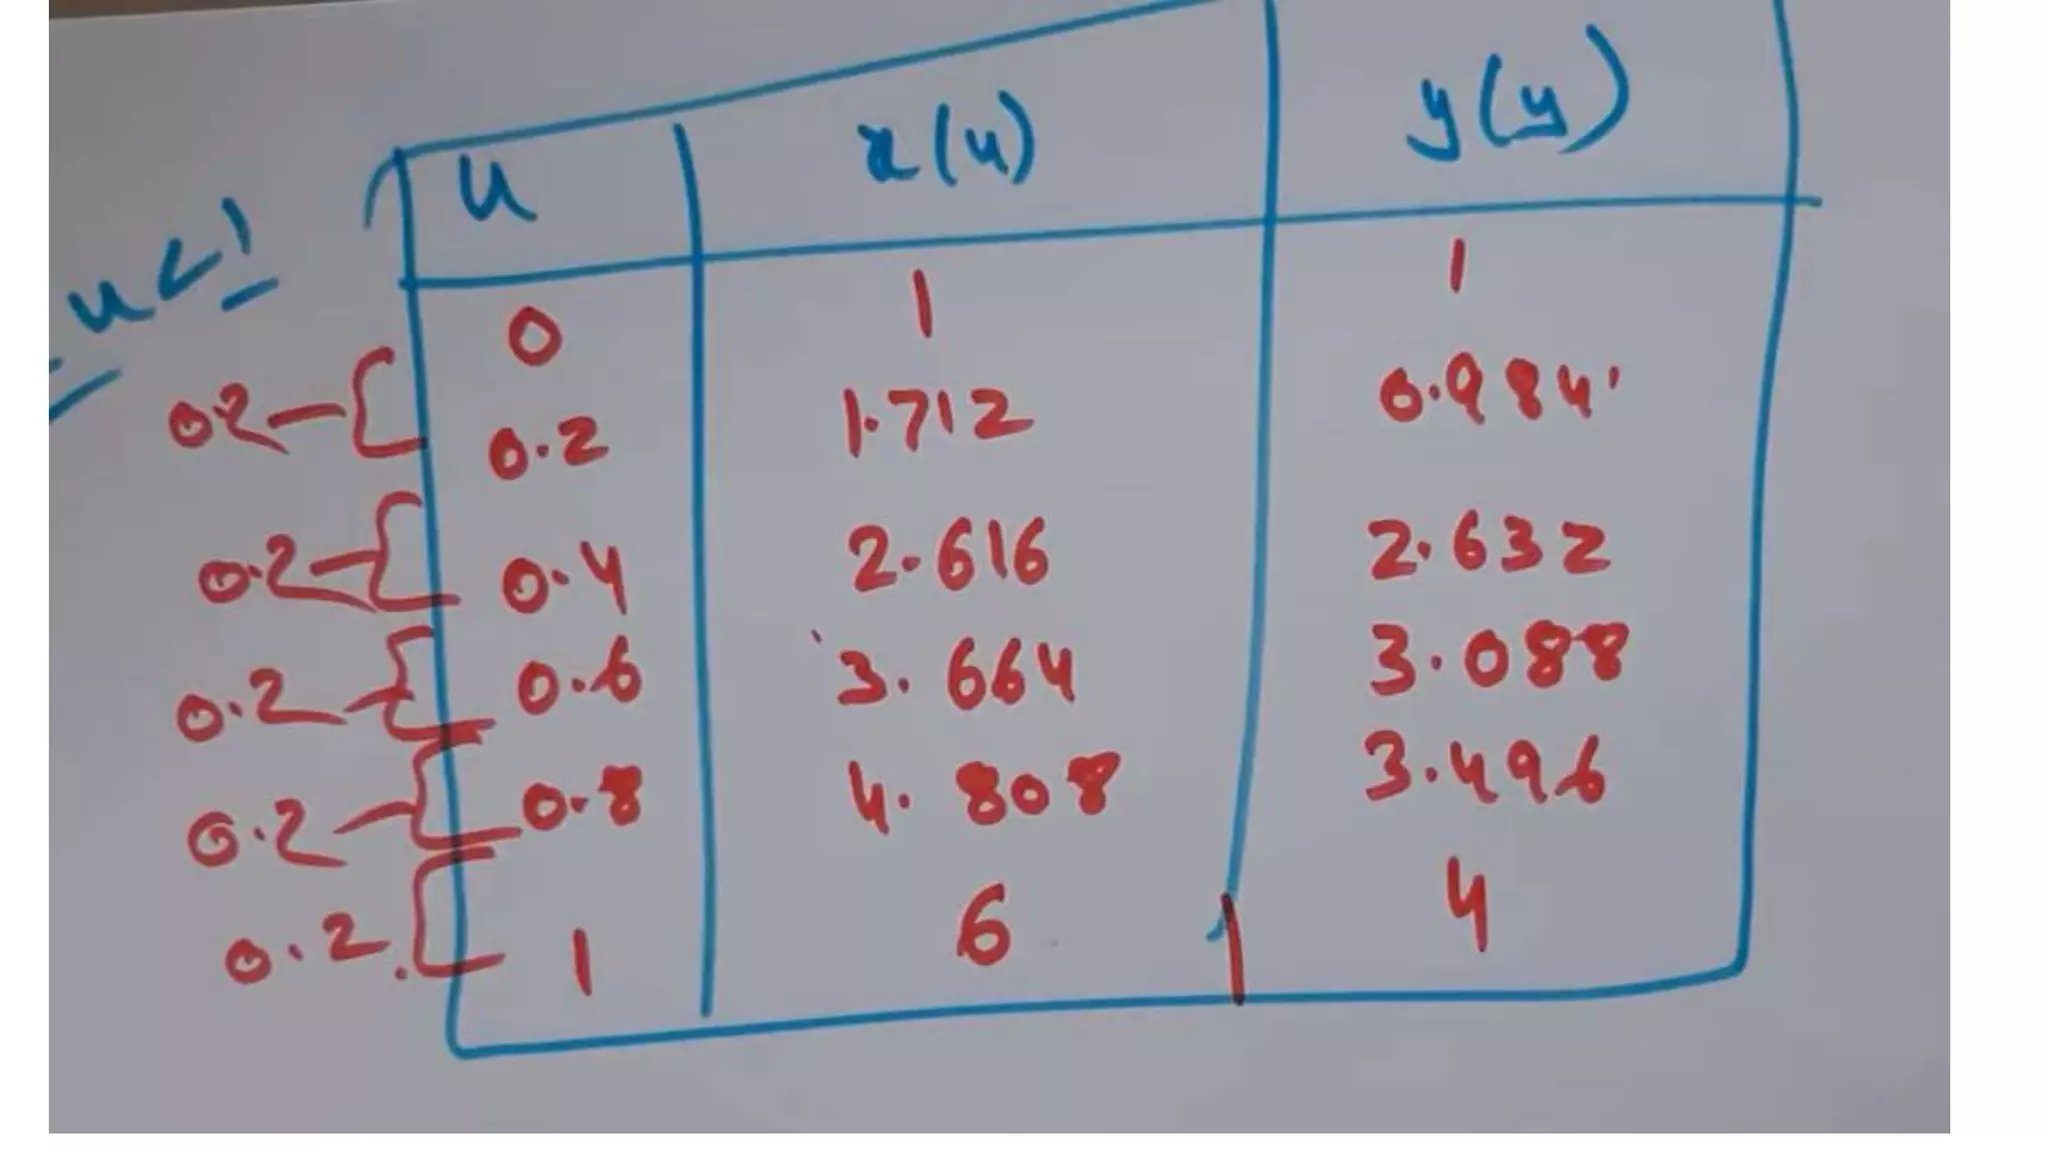 u x(u) y(y)
u<1
0 1 1
0.2 0.2 1.712 0.984
0.2 0.4 2.616 2.632
0.2 0.6 3.664 3.088
0.2 0.8 4.808 3.496
0.2 1 6 4